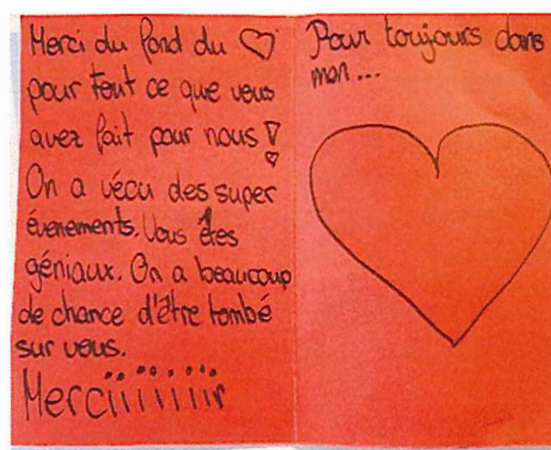 Merci du fond du ♡
pour tout ce que vous
avez fait pour nous !
On a vécu des super
évenements. Vous êtes
géniaux. On a beaucoup
de chance d'être tombé
sur vous.
Merciiiiiiiir
Pour toujours dans
mon...